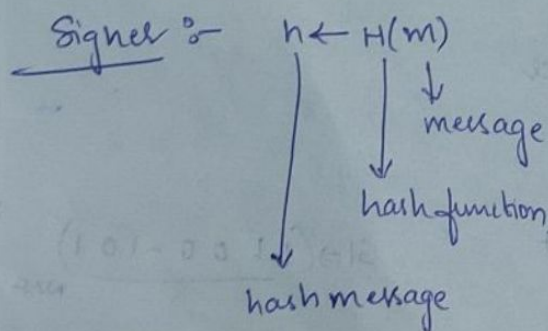 Signer :- h ← H(m)
message
hash function
hash message